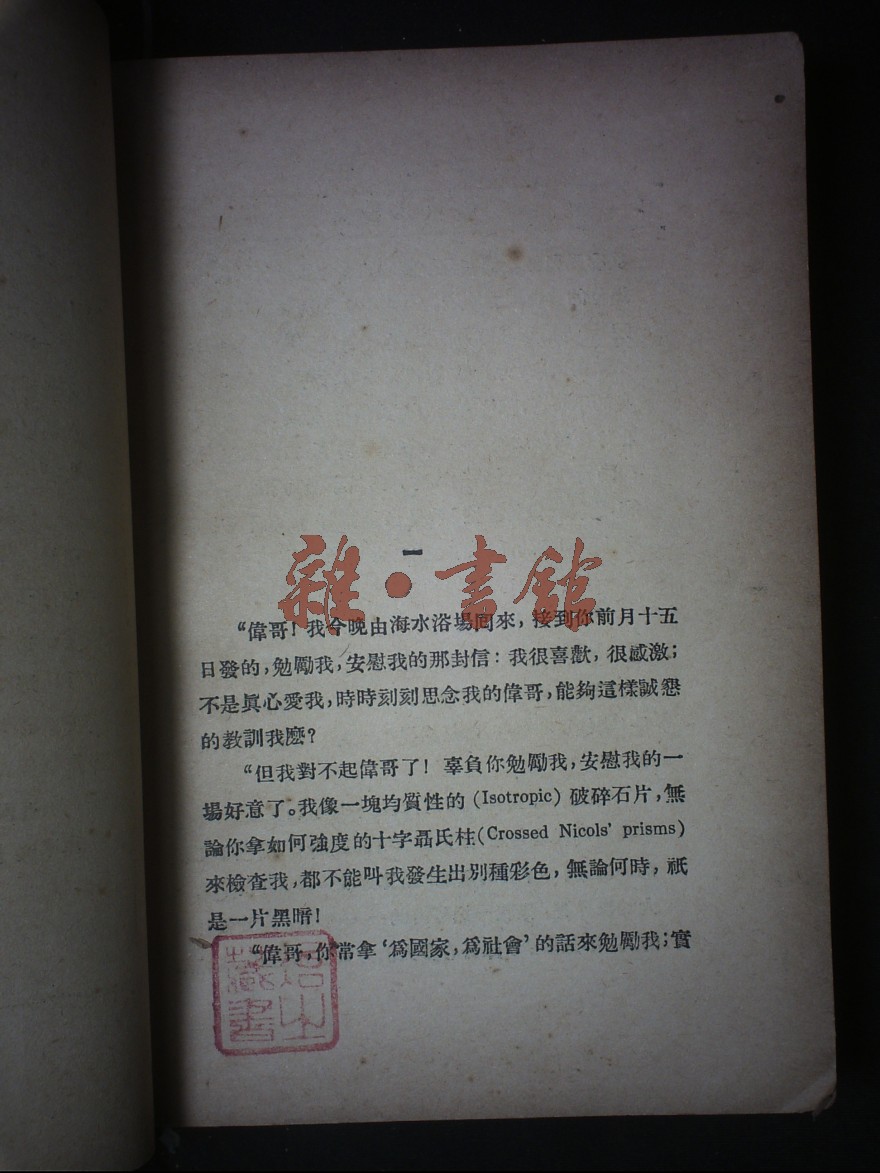 一
雜·書館
“偉哥!我今晚由海水浴場回來,接到你前月十五
日發的,勉勵我,安慰我的那封信:我很喜歡,很感激;
不是眞心愛我,時時刻刻思念我的偉哥,能夠這樣誠懇
的教訓我麽?
“但我對不起偉哥了!辜負你勉勵我,安慰我的一
場好意了。我像一塊均質性的(Isotropic)破碎石片,無
論你拿如何強度的十字聶氏柱(Crossed Nicols' prisms)
來檢查我,都不能叫我發生出別種彩色,無論何時,祇
是一片黑暗!
“偉哥,你常拿‘爲國家,爲社會’的話來勉勵我;實
藏書